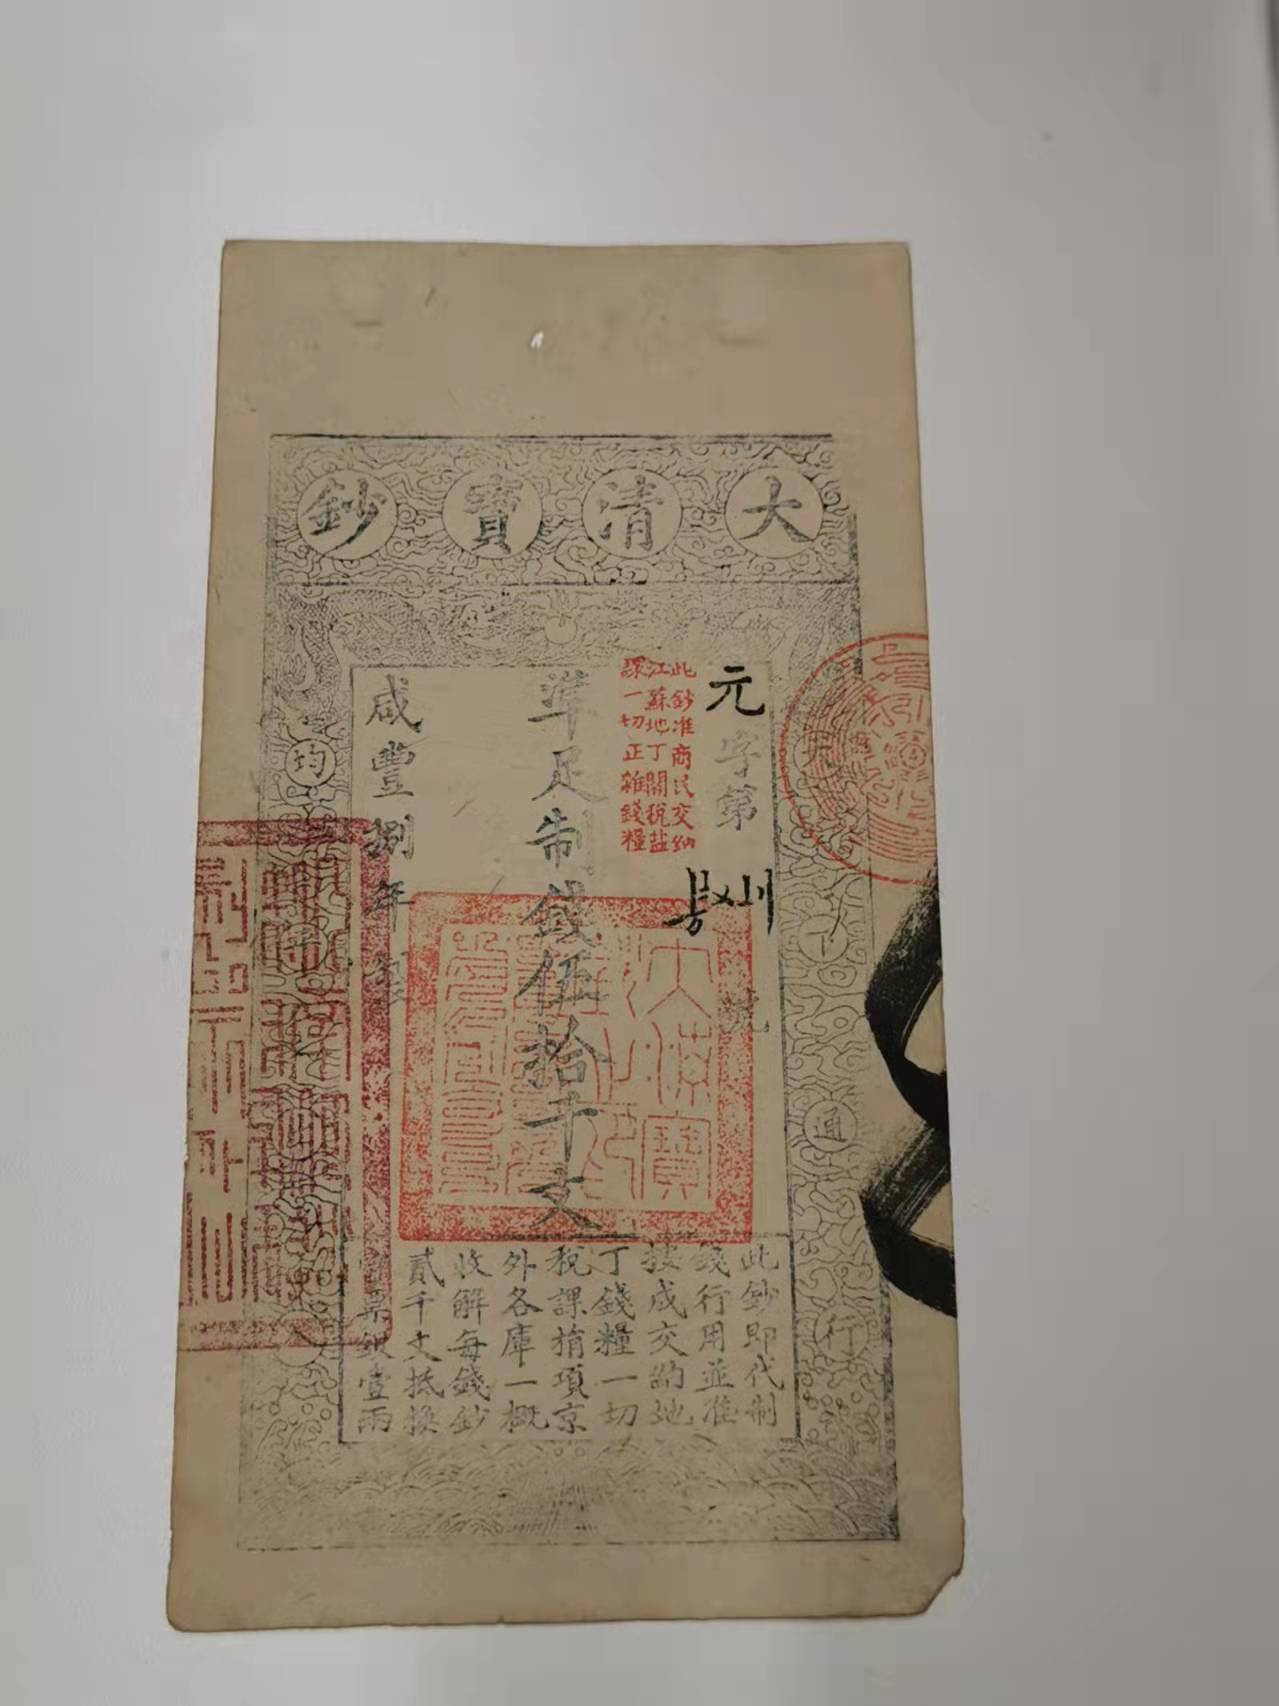 大清寶鈔
元字第
號
此鈔准商民交納
江蘇地丁關稅鹽
課一切正雜錢糧
準足制錢伍拾千文
咸豐捌年製
天下通行
均
此鈔即代制
錢行用並准
按成交納地
丁錢糧一切
稅課捐項京
外各庫一概
收解每錢鈔
貳千文抵換
官票銀壹兩